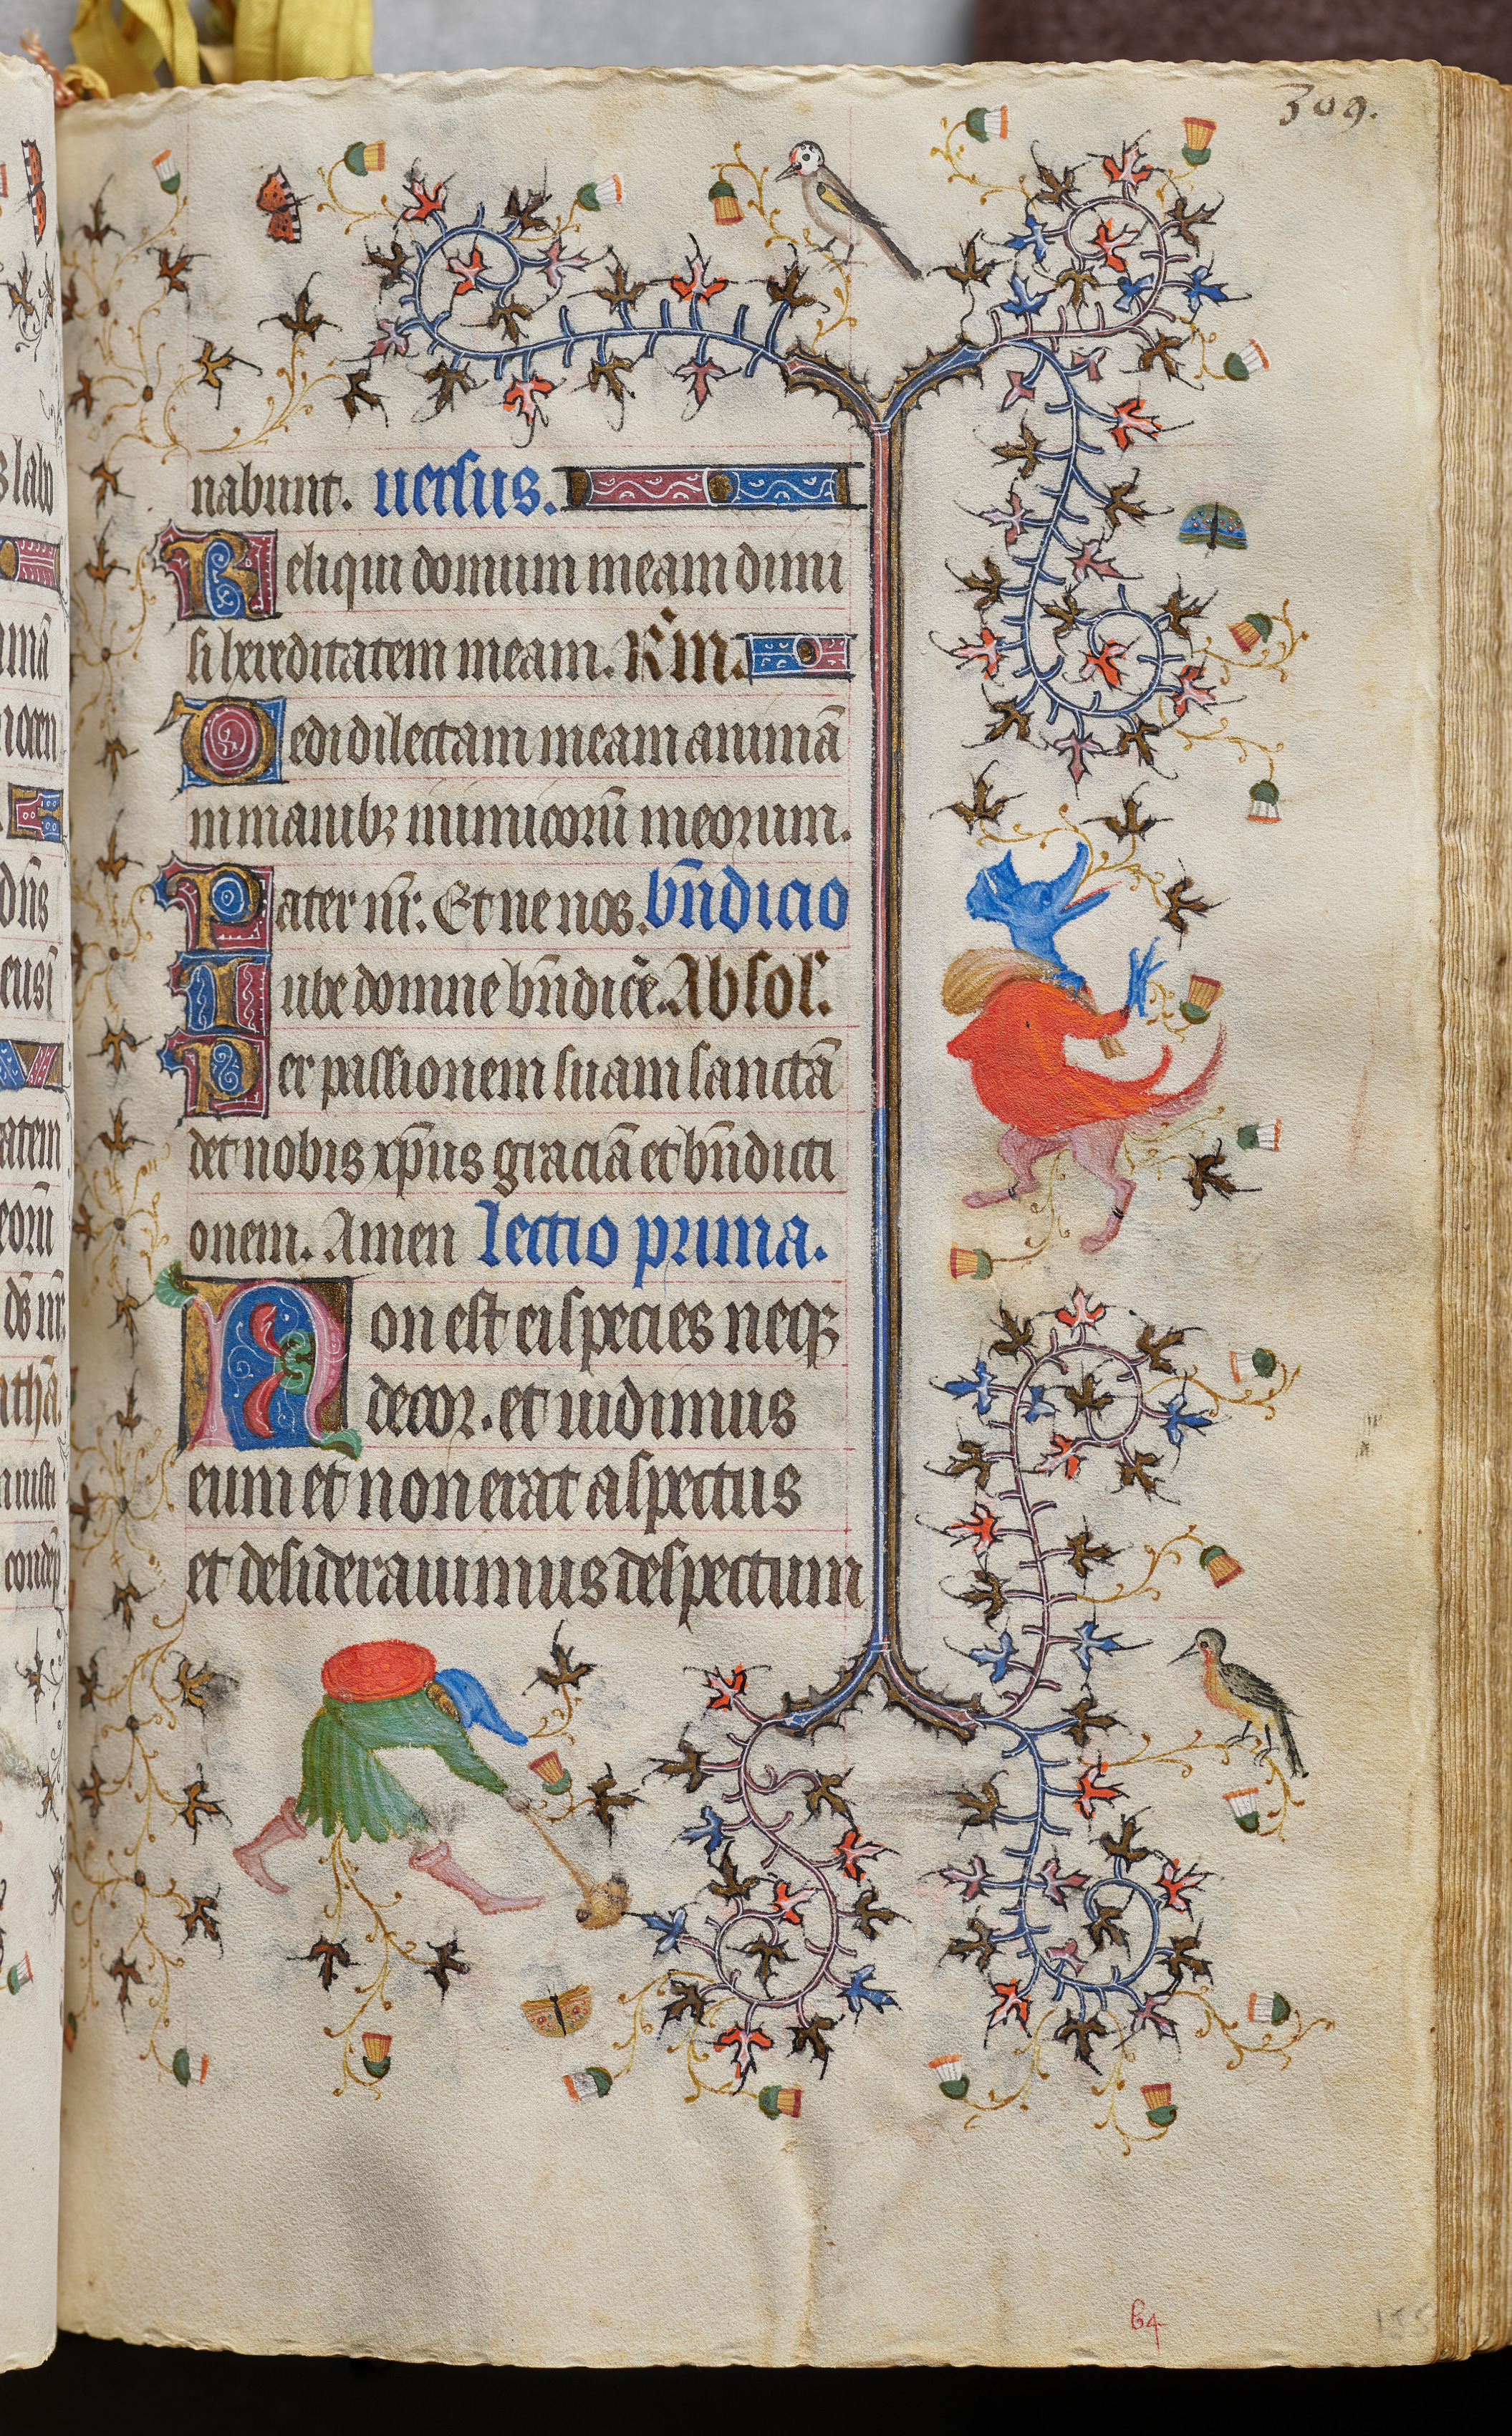 309.
nabunt. uersus.
Reliqui domum meam dimi
si hereditatem meam. R̃m.
Dedi dilectam meam animā
in manibꝫ inimicorū meorum.
Pater nr̄. Et ne nos. bn̄dicio
Iube domne bn̄dicē. Absol.
Per passionem suam sanctā
det nobis xp̄us graciā et bn̄dicti
onem. Amen lectio prima.
Non est ei species neqꝫ
decor. et uidimus
eum et non erat aspectus
et desiderauimus despectum
64
155